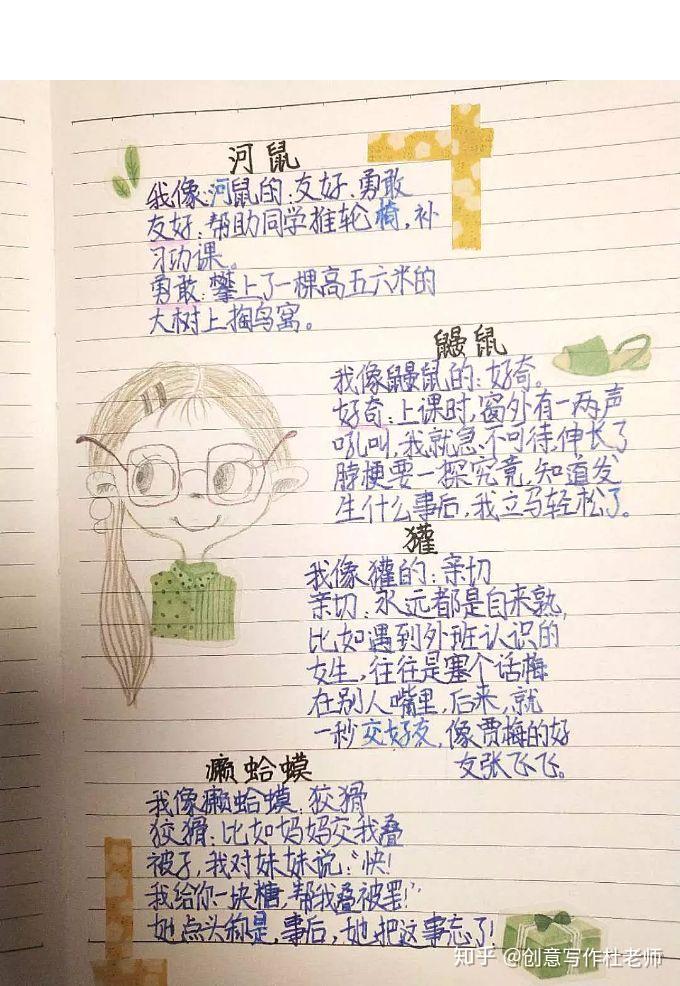 河鼠
我像河鼠的:友好、勇敢
友好:帮助同学推轮椅,补
习功课。
勇敢:攀上了一棵高五六米的
大树上掏鸟窝。
鼹鼠
我像鼹鼠的:好奇。
好奇:上课时,窗外有一两声
吼叫,我就急不可待,伸长了
脖梗要一探究竟,知道发
生什么事后,我立马轻松了。
獾
我像獾的:亲切
亲切:永远都是自来熟,
比如遇到外班认识的
女生,往往是塞个话梅
在别人嘴里,后来,就
一秒交好友,像贾梅的好
友张飞飞。
癞蛤蟆
我像癞蛤蟆:狡猾
狡猾:比如妈妈交我叠
被子,我对妹妹说:“快!
我给你一块糖,帮我叠被罢!”
她点头称是,事后,她把这事忘了!
知乎 @创意写作杜老师